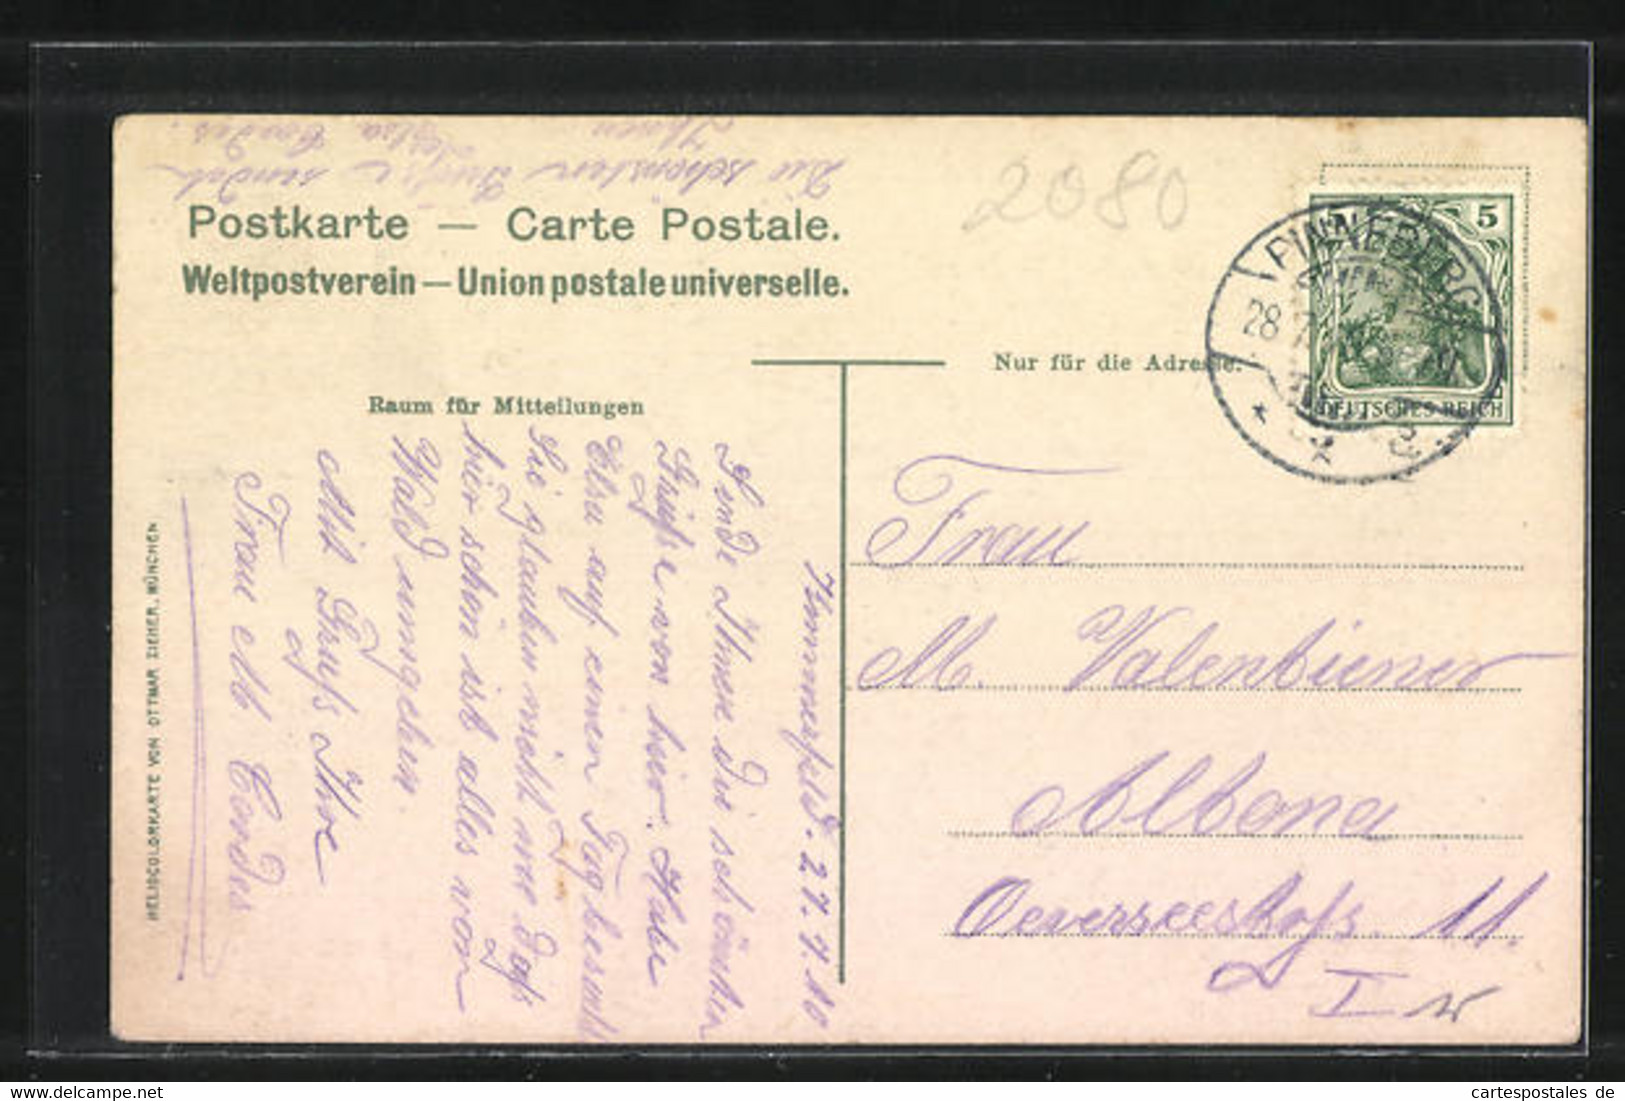 Die schönsten Grüße sendet
Ihnen Elsa Cordes.
2080
Postkarte — Carte Postale.
Weltpostverein — Union postale universelle.
Nur für die Adresse.
Raum für Mitteilungen
5
DEUTSCHES REICH
PINNEBERG
28.7
Kummerfeld. 27.7.10
Sende Ihnen die schönsten
Grüße von hier. Habe
Elsa auf einen Tag besucht
Sie glauben nicht wie
hier schön ist alles von
Wald umgeben.
Mit Gruß Ihre
Frau M. Cordes
Frau
M. Valentiener
Altona
Oeverseestraß. 11.
I
HELIOCOLORKARTE VON OTTMAR ZIEHER, MÜNCHEN
cartespostales de
www.delcampe.net